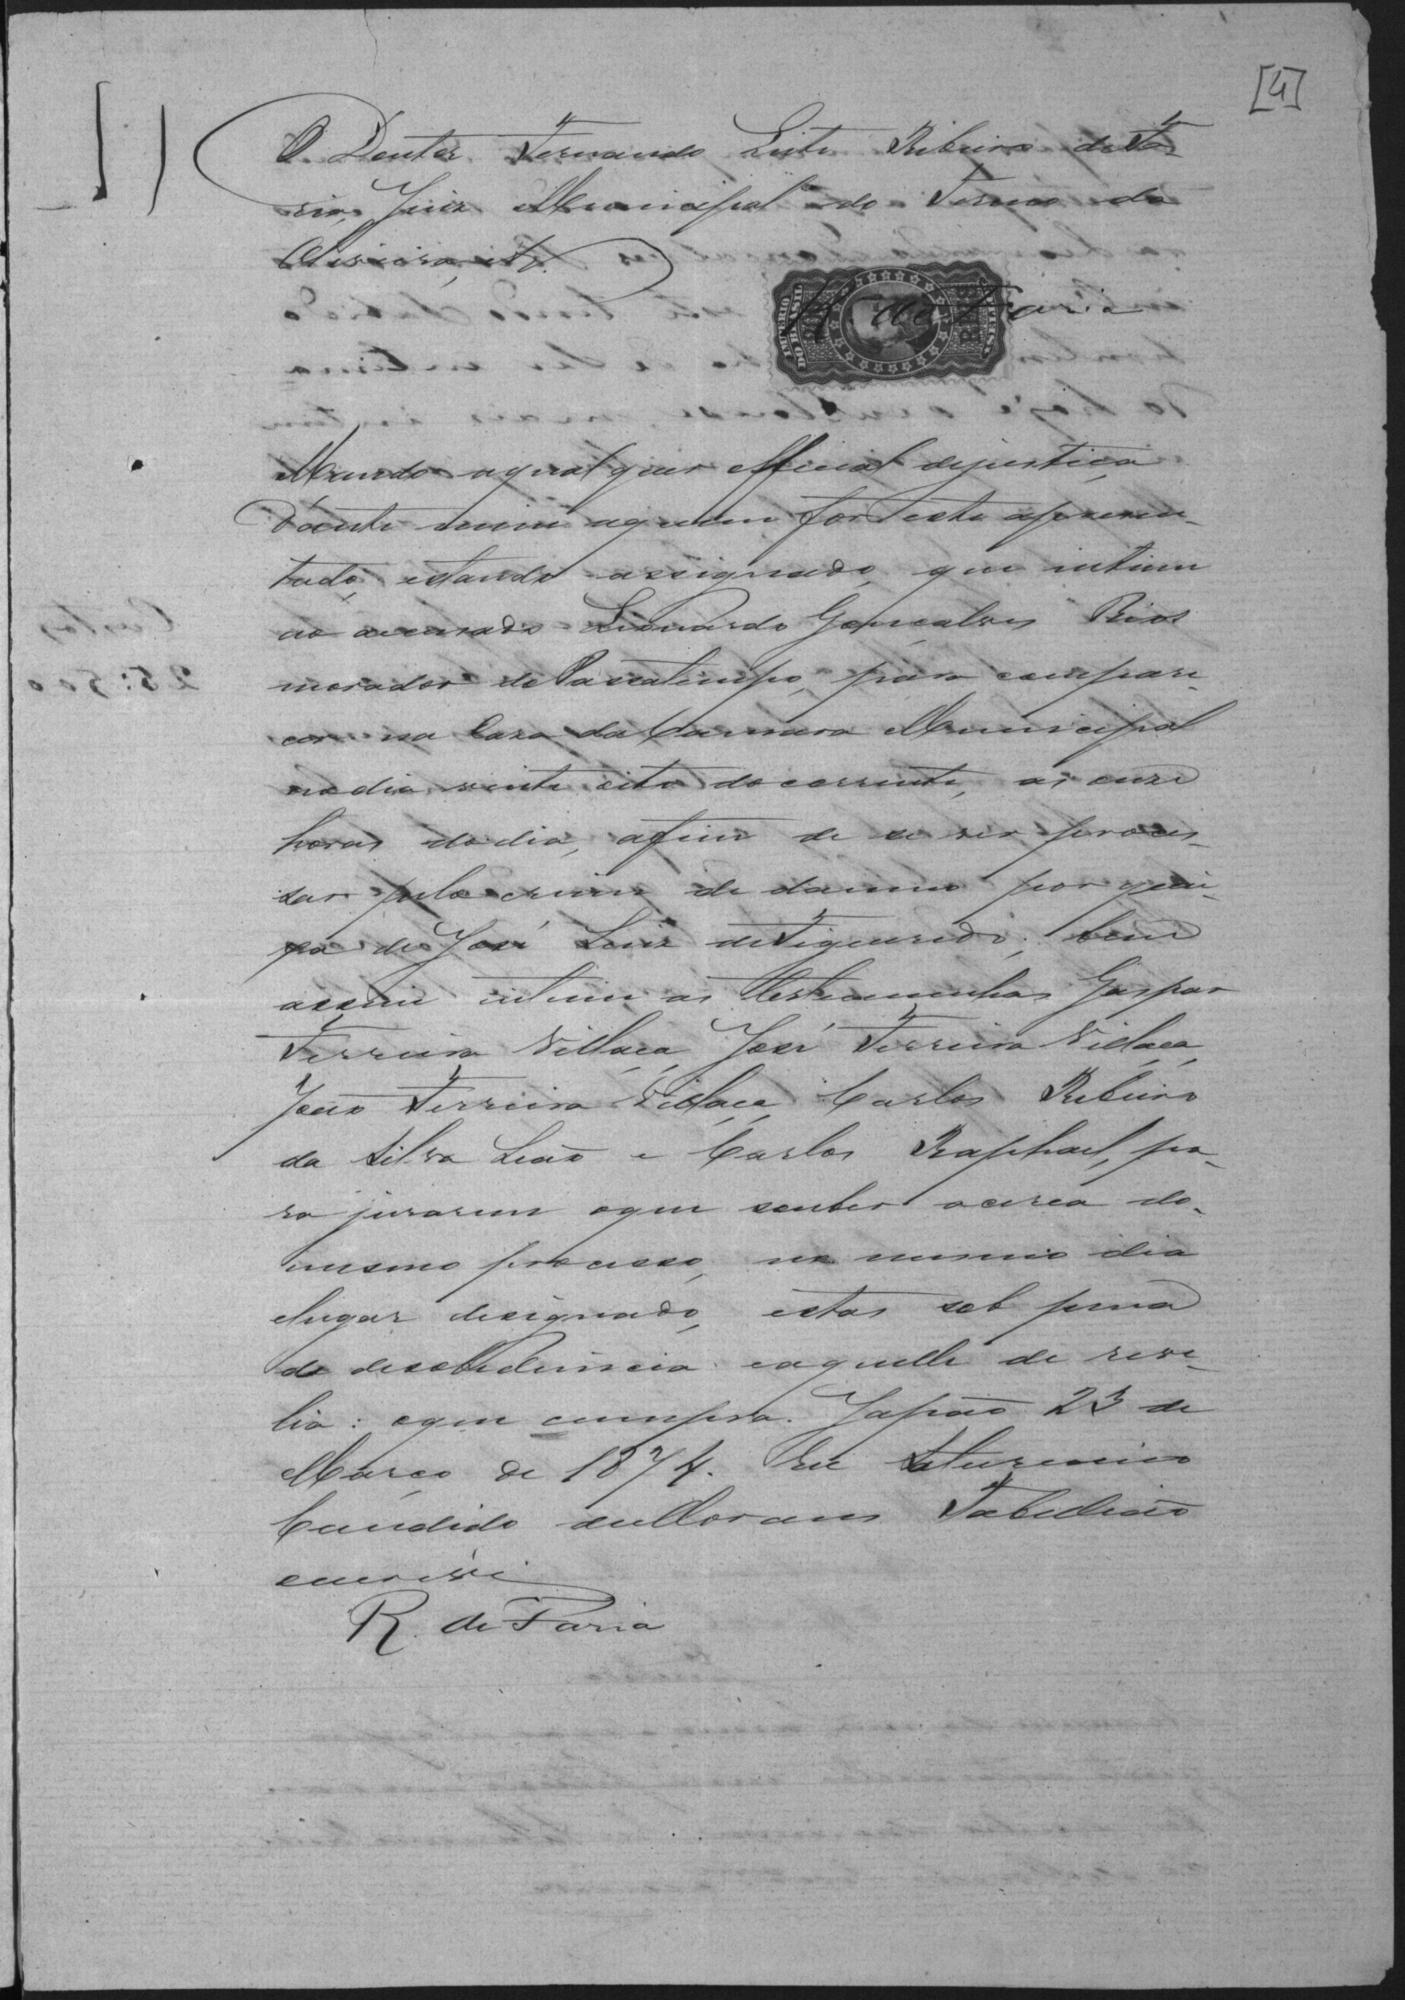 [4]
O Doutor Fernando Leite Ribeiro de Fa-
ria, Juiz Municipal do Termo da
Oliveira, etc.
IMPERIO DO BRASIL
R. de Faria
Mando a qualquer official dejustiça
d'ante mim aquem for este aprezen-
tado, estando assignado, que intime
ao accusado Leonardo Gonçalves Rios
morador do Passatempo, para compare-
cer na Caza da Camara Municipal
nodia vinte oito do corrente, as onze
horas dodia, afim de se ver proces-
sar pelo crime de damno por quei-
xa de José Luiz de Figueiredo; bem
assim intime as testemunhas Gaspar
Ferreira Villaça, José Ferreira Villaça,
João Ferreira Villaça, Carlos Ribeiro
da Silva Leão e Carlos Raphael, pa-
ra jurarem oque souber acerca do
mesmo processo, no mesmo dia
elugar designado, estas sob pena
de desobediencia eaquelle de reve-
lia: oque cumpra. Japão 23 de
Março de 1874. Eu Saturnino
Candido de Moraes Tabellião
escrevi
R. de Faria